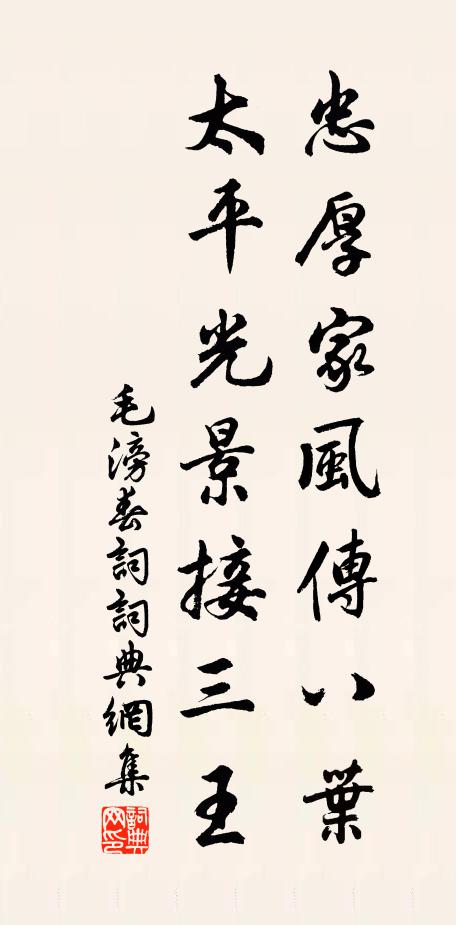 忠厚家風傳八葉
太平光景接三王
毛滂春詞詞典網集
詞典網印